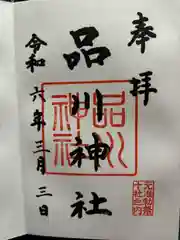 奉拝
品川神社
品川神社
令和六年三月三日